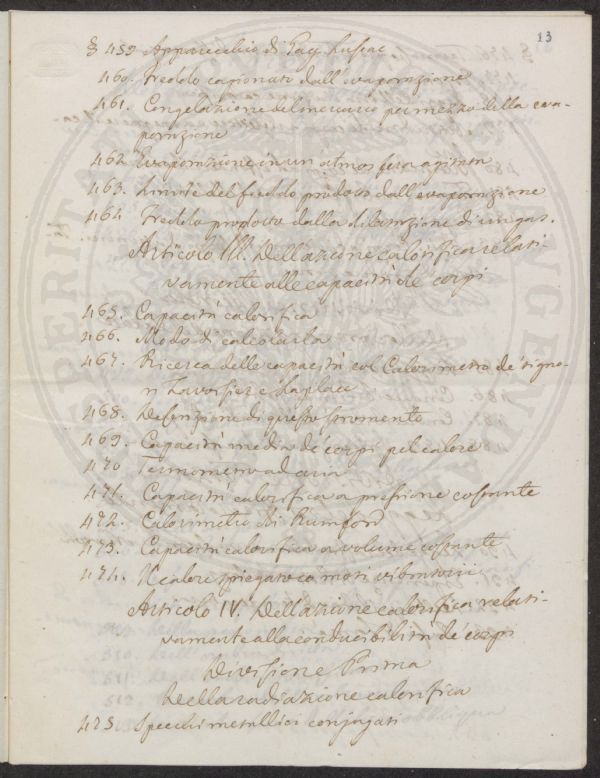 13
§ 459 Apparecchio di Gay Lussac
460. Freddo cagionato dall'evaporazione
461. Congelazione del mercurio per mezzo della eva-
porazione
462 Evaporazione in un atmosfera agitata
463. Limite del freddo prodotto dall'evaporazione
464 Freddo prodotto dalla dilatazione di un gas.
Articolo III. Dell'azione calorifica relati-
vamente alle capacità de' corpi
465. Capacità calorifica
466. Modo di calcolarla
467. Ricerca delle capacità col Calorimetro de' signo-
ri Lavoisier e Laplace
468. Definizione di questo stromento
469. Capacità media de' corpi pel calore
470 Termometro ad aria
471. Capacità calorifica a pressione costante
472. Calorimetro di Rumford
473. Capacità calorifica a volume costante
474. Il calore spiegato co' moti vibratorii
Articolo IV. Dell'azione calorifica relati-
vamente alla conducibilità de' corpi
Divisione Prima
Della radiazione calorifica
475. Specchi metallici conjugati